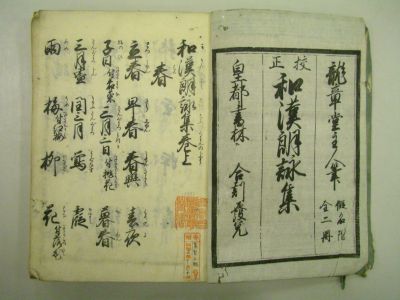 龍章堂主人筆
假名附
全二冊
校正
和漢朗詠集
皇都書林
合刻發兌
和漢朗詠集巻上
春
立春 早春 春興 春夜
子日 付若菜 三月三日 付桃花 暮春
三月盡 閏三月 鶯 霞
雨 梅 付紅梅 柳 花 付落花